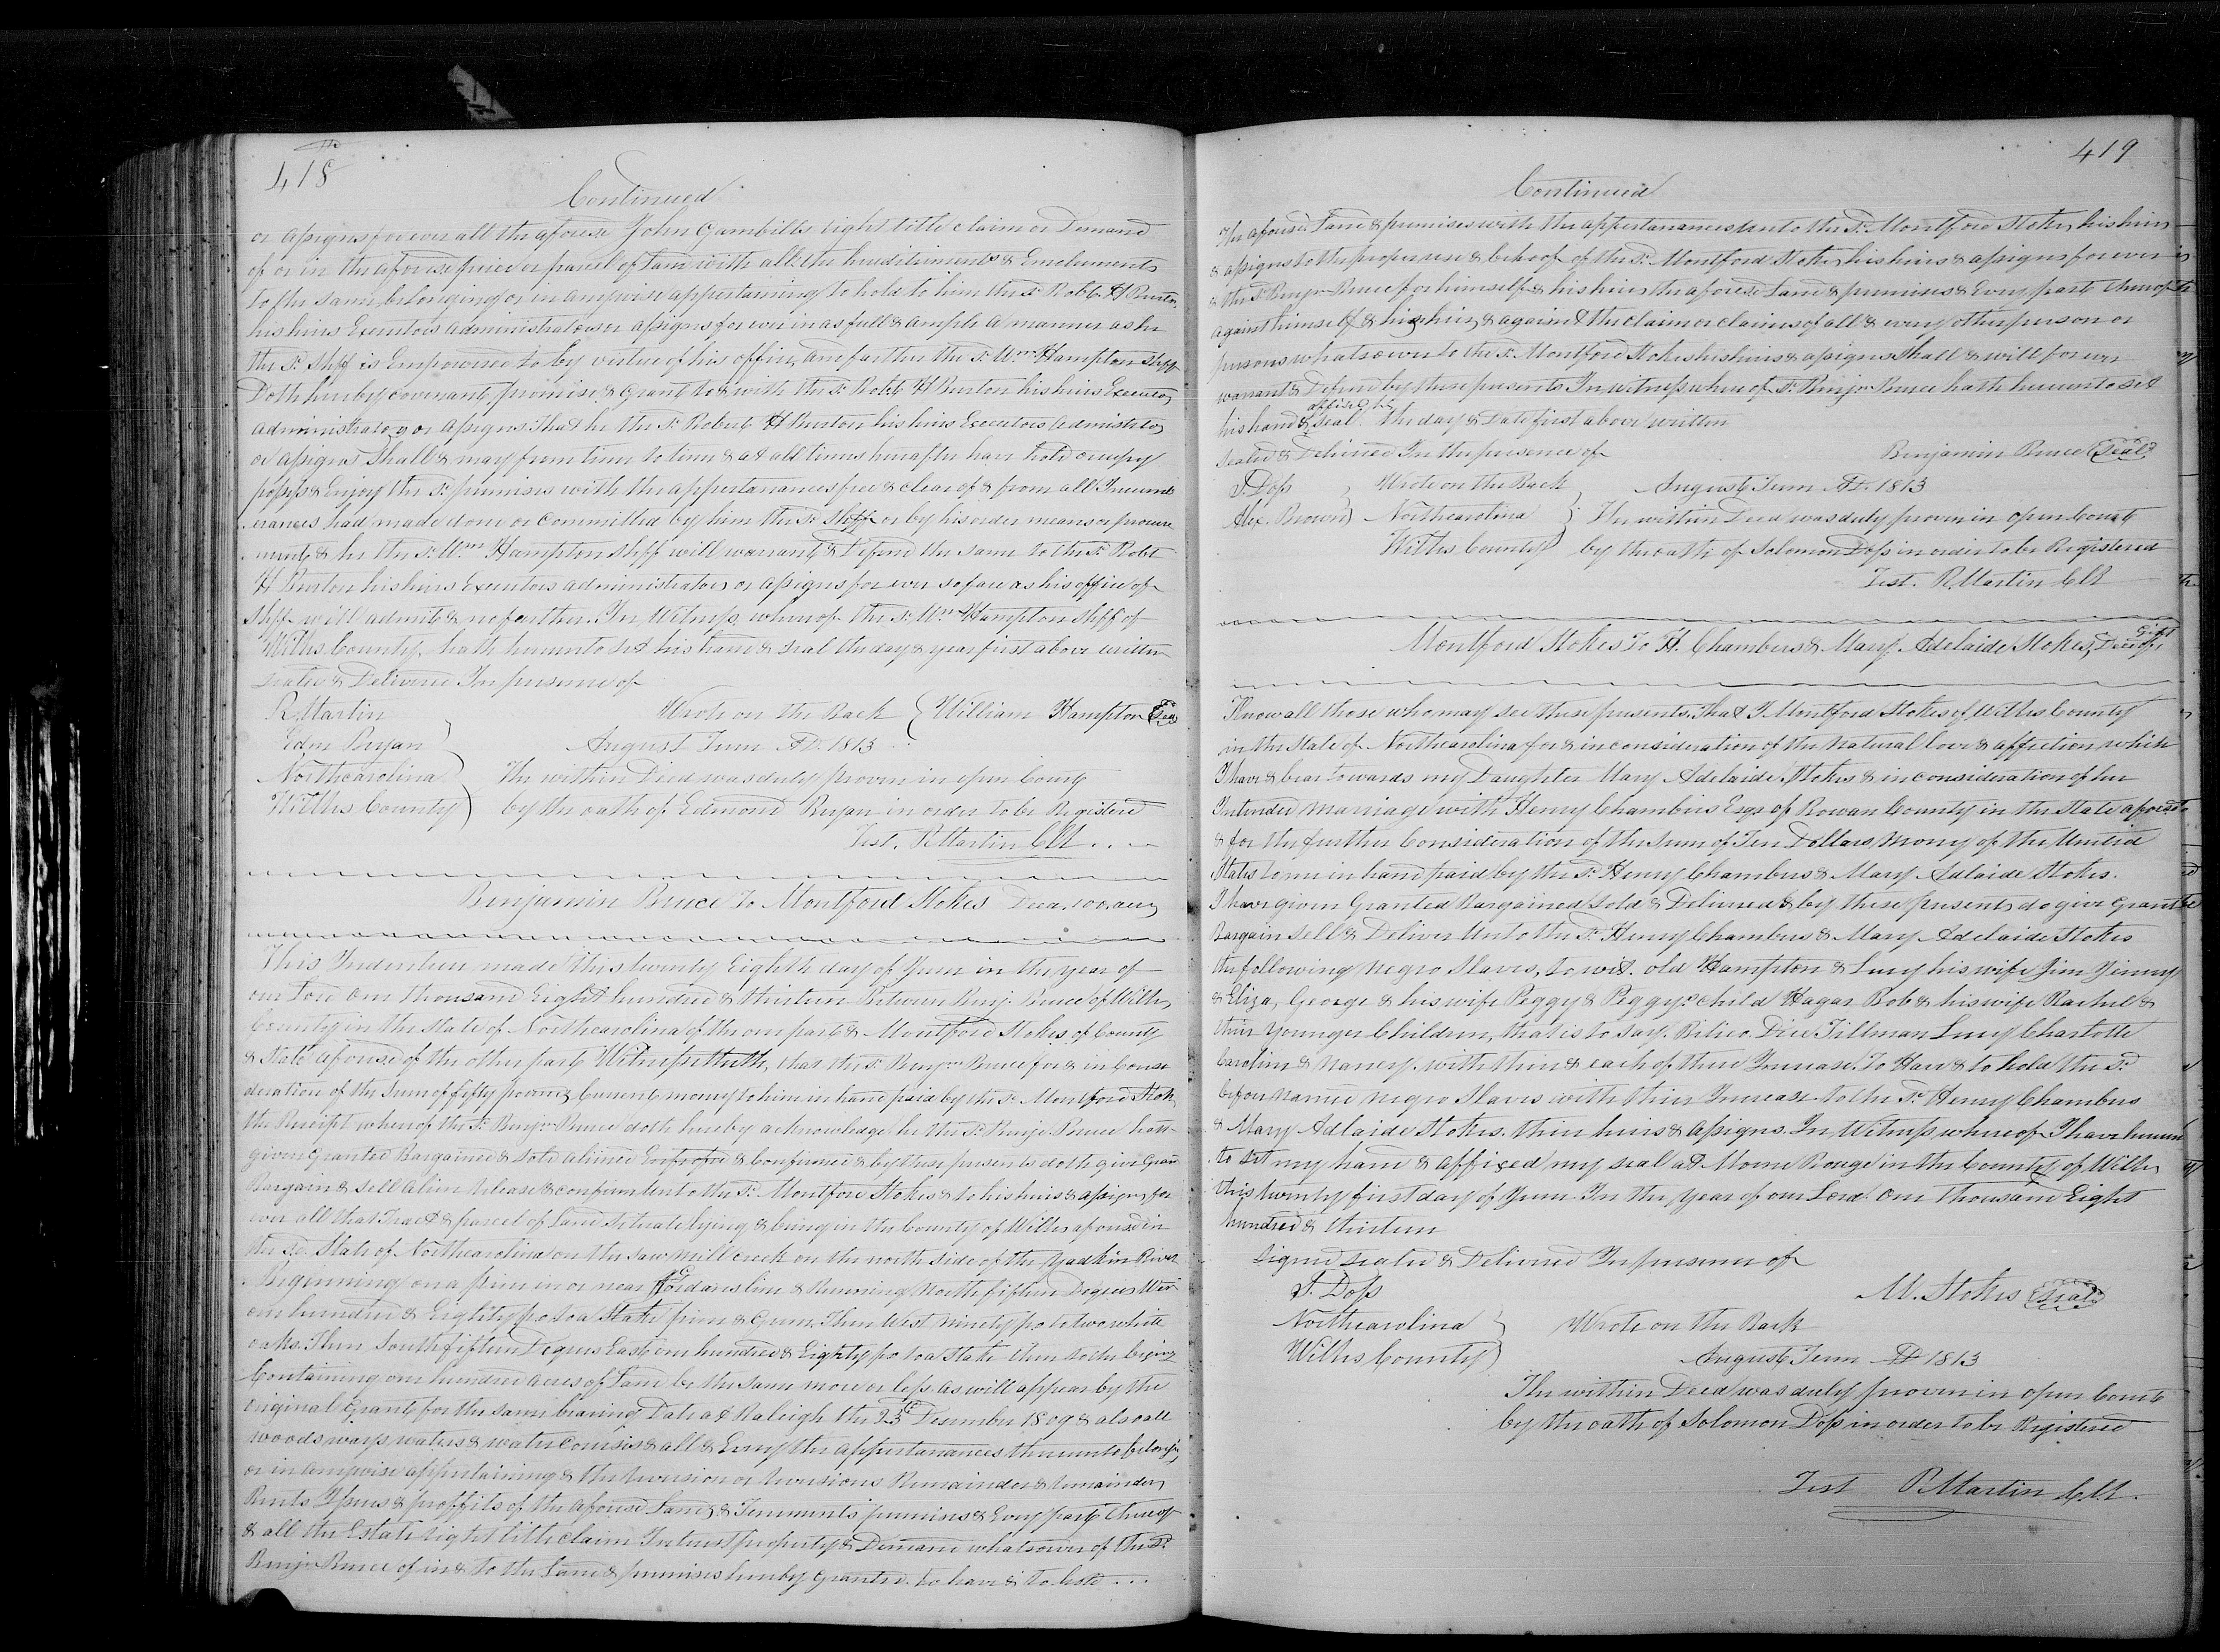 418
Continued
or assigns for ever all the aforesd John Gambills right title claim or Demand
of or in the aforesd piece or parcel of Land with all the hereditiments & Emoluments
to the same belonging or in anywise appertaining to hold to him the sd Robt H Burton
his heirs Executors administrators or assigns for ever in as full & ample a manner as he
the sd Shff is Empowered to by virtue of his office, and farther the sd Wm Hampton Shff
Doth hereby covenant, promise, & Grant to & with the sd Robt H Burton his heirs Executors
administrators or assigns that he the sd Robert H Burton his heirs Executors administrators
or assigns shall & may from time to time & at all times hereafter have hold occupy
possess & Enjoy the sd premises with the appertanances free & clear of & from all Incumb
erances had made done or committed by him the sd Shff or by his order means or procure
ment & he the sd Wm Hampton Shff will warrant & Defend the same to the sd Robt
H Burton his heirs Executors administrators or assigns for ever so far as his office of
Shff will admit & no farther. In Witness whereof the sd Wm Hampton Shff of
Wilkes County hath hereunto set his hand & seal the day & year first above written
sealed & Delivered In presence of
R Martin Wrote on the Back William Hampton Seal
Edm Bryan August Term AD. 1813
Northcarolina The within Deed was duly proven in open Court
Wilkes County by the oath of Edmond Bryan in order to be Registered
Test. R Martin Clk
Benjamin Bruce To Montford Stokes Deed 100 acres
This Indenture made this twenty Eighth day of June in the year of
our Lord one thousand Eight hundred & thirteen Between Benj. Bruce of Wilkes
County in the State of Northcarolina of the one part & Montford Stokes of County
& State aforesd of the other part Witnesseth, that the sd Benjn Bruce for & in Consi
deration of the Sum of fifty pounds Current money to him in hand paid by the sd Montford Stokes
the Receipt whereof the sd Benjn Bruce doth hereby acknowledge he the sd Benjn Bruce hath
given granted Bargained & sold aliened & Confirmed & by these presents doth give Grant
Bargain & sell alien release & confirm unto the sd Montford Stokes & to his heirs & assigns for
ever all that Tract & parcel of Land Situate lying & being in the County of Wilkes aforesd in
the sd State of Northcarolina on the saw mill creek on the north side of the Yadkin River
Beginning on a pine in or near line & Running North fifteen Degrees West
one hundred & Eighty po to a Stake pine & Gum Then West ninety po to two white
oaks. Then South fifteen Degrees East one hundred & Eighty po to a Stake then to the begining
Containing one hundred acres of Land be the same more or less as will appear by the
original Grant for the same bearing Date at Raleigh the 23d December 1809 & also all
woods ways waters & water Courses & all & Every the appertanances thereunto belonging
or in anywise appertaining & the reversion or reversions Remainder & remainders
Rents Issues & proffits of the aforesd Land & Tenements premises & Every part thereof
& all the Estate right title claim Interest property & Demand whatsoever of the sd
Benjn Bruce of in & to the Land & premises hereby granted. to have & to hold ...
419
Continued
The aforesd Land & premises with the appertanances unto the sd Montford Stokes, his heirs
& assigns to the proper use & behoof of the sd Montford Stokes his heirs & assigns for ever
& the sd Benjn Bruce for himself & his heirs the aforesd Land & premises & Every part thereof
against himself & his heirs, & against the claim or claims of all & every other person or
persons whatsoever to the sd Montford Stokes his heirs & assigns Shall & will for ever
warrant & Defend by these presents. In witness whereof sd Benjn Bruce hath hereunto set
his hand & affixed his seal. The day & Date first above written
Sealed & Delivered In the presence of Benjamin Bruce Seal
S. Doss Wrote on the Back August Term AD. 1813
Alex. Brown Northcarolina The within Deed was duly proven in open Court
Wilkes County by the oath of Solomon Doss in order to be Registered
Test. R Martin Clk
Montford Stokes To H. Chambers & Mary Adelaide Stokes, Deed of Gift
Know all those who may see these presents, That I Montford Stokes of Wilkes County
in the State of Northcarolina for & in consideration of the Natural love & affection which
I have & bear towards my Daughter Mary Adelaide Stokes & in consideration of her
Intended marriage with Henry Chambers Esqr of Rowan County in the State aforesd
& for the further Consideration of the sum of Ten Dollars Money of the United
States to me in hand paid by the sd Henry Chambers & Mary Adalaide Stokes.
I have given Granted Bargained Sold & Delivered & by these presents do give grant
Bargain Sell & Deliver Unto the sd Henry Chambers & Mary Adelaide Stokes
the following negro Slaves, to wit. old Hampton & Lucy his wife Jim Jinney
& Eliza, George & his wife Peggy & Peggys child Hagar Bob & his wife Rachel &
their younger Children, that is to say. Dice Tillman Lucy Charlotte
Caroline & Nancy. with their & each of there Increase. To Have & to hold the sd
before named negro Slaves with their Increase to the sd Henry Chambers
& Mary Adlaide Stokes. their heirs & assigns. In Witness whereof I have hereun
to set my hand & affixed my seal at Morne Rouge in the County of Wilkes
this twenty first day of June In the year of our Lord one thousand Eight
hundred & thirteen
Signed sealed & Delivered In presence of
S. Doss M. Stokes Seal
Northcarolina Wrote on the Back
Wilkes County August Term AD 1813
The within Deed was duly proven in open Court
by the oath of Solomon Doss in order to be Registered
Test R Martin Clk.